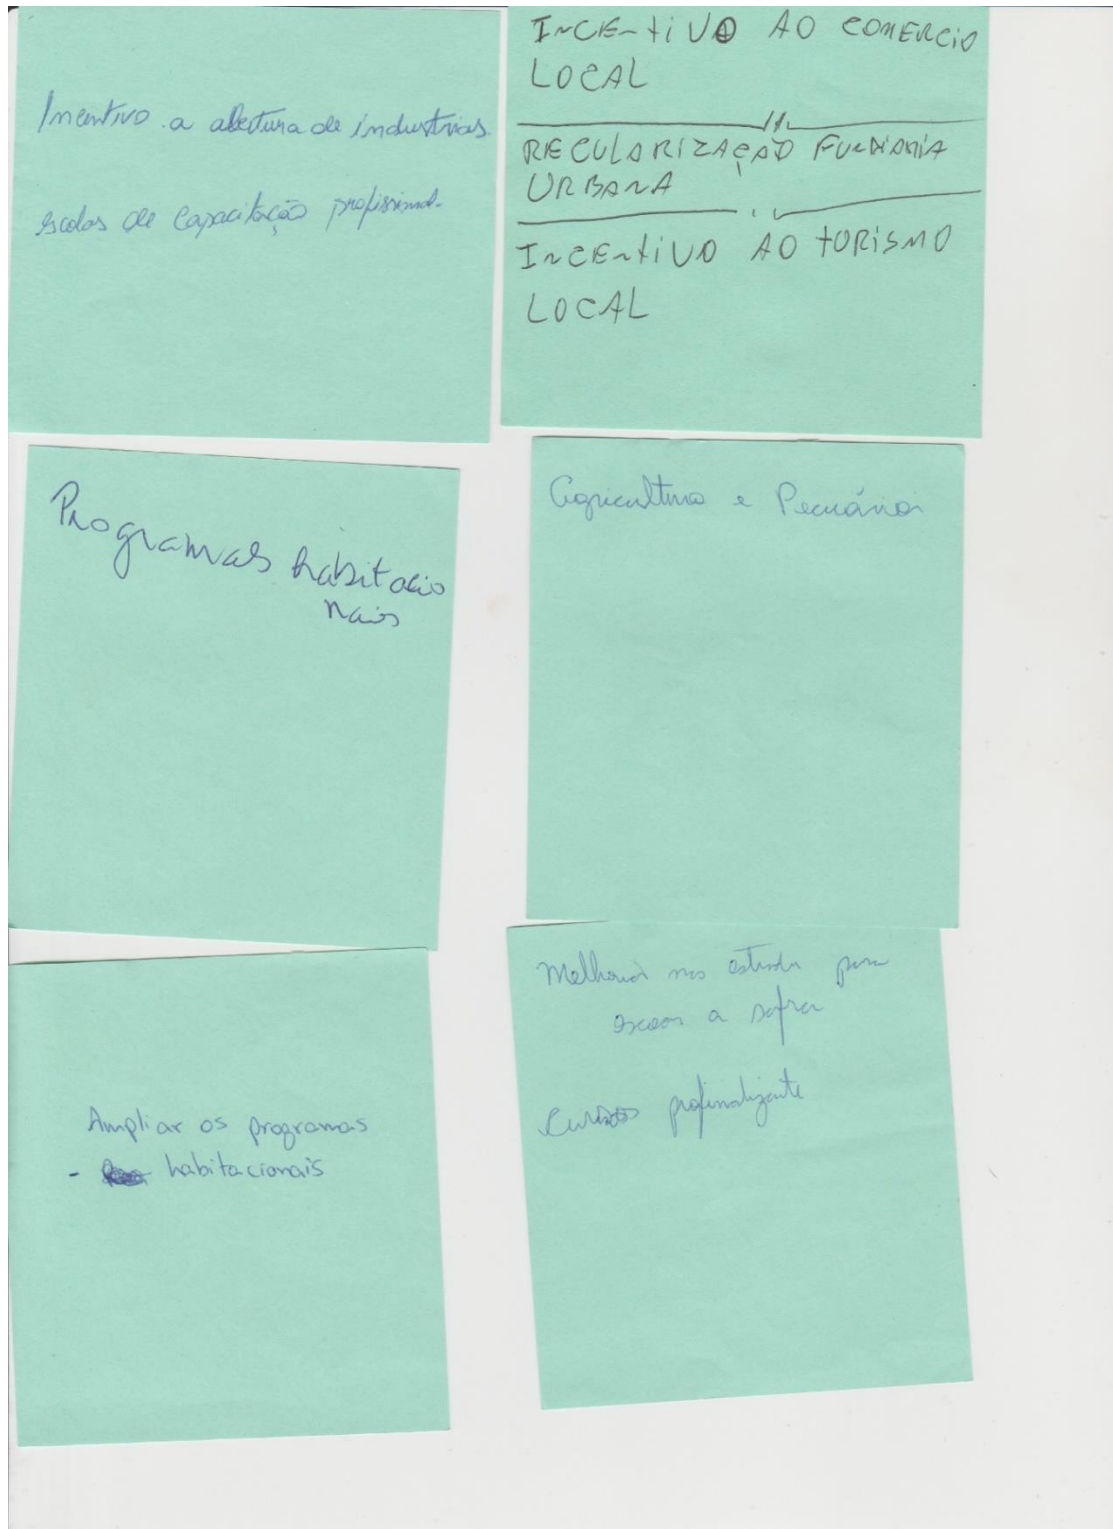 Incentivo a abertura de industrias.
escolas de capacitação profissional.
INCENTIVO AO COMERCIO
LOCAL
REGULARIZAÇÃO FUNDIARIA
URBANA
INCENTIVO AO TURISMO
LOCAL
Programas habitacio
nais
Agricultura e Pecuária
Ampliar os programas
- habitacionais
Melhoria nas estrada para
escoar a safra
Cursos profinalizante